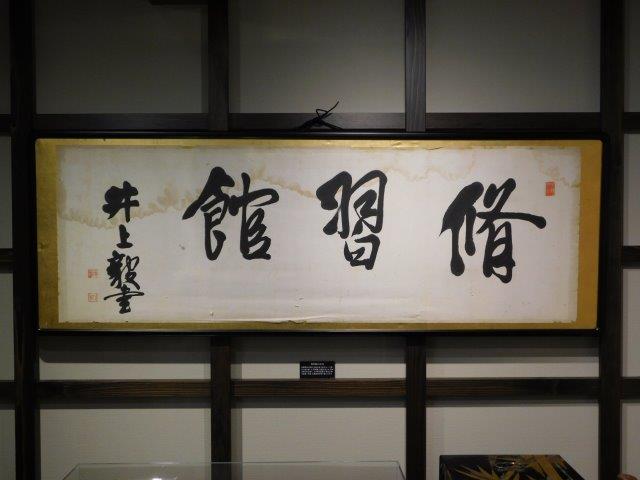 脩習館
井上毅書